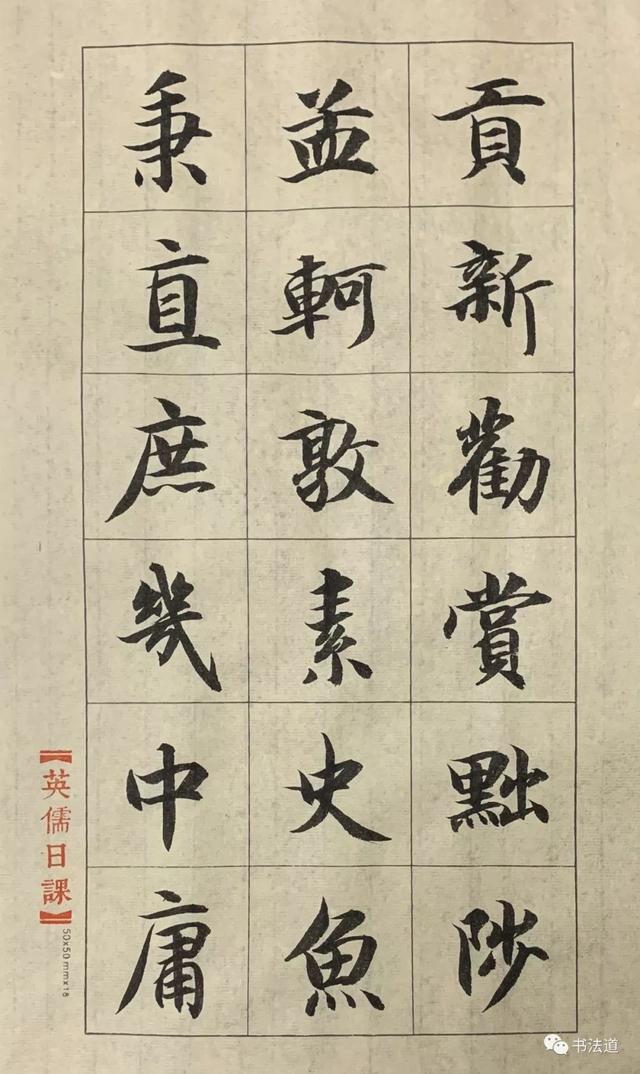 貢新勸賞黜陟
孟軻敦素史魚
秉直庶幾中庸
【英儒日課】
50x50mmx18
书法道